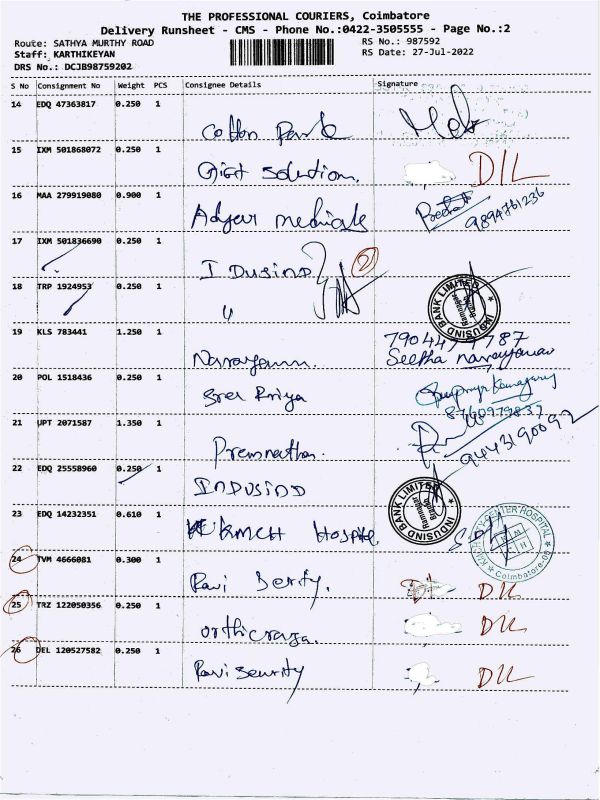 THE PROFESSIONAL COURIERS, Coimbatore
Delivery Runsheet - CMS - Phone No.:0422-3505555 - Page No.:2
Route: SATHYA MURTHY ROAD
RS No.: 987592
Staff: KARTHIKEYAN
RS Date: 27-Jul-2022
DRS No.: DCJB98759202
S No Consignment No Weight PCS Consignee Details Signature
14 EDQ 47363817 0.250 1
Cotton Park
15 IXM 501868072 0.250 1
solution. DIL
16 MAA 279919080 0.900 1
Adyar medicals 9894761236
17 IXM 501836690 0.250 1
IDUSIND 2
18 TRP 1924953 0.250 1
INDUSIND BANK LIMITED
19 KLS 783441 1.250 1
Narayann. Seetha narayanan
20 POL 1518436 0.250 1
Sree Priya
8760979837
21 UPT 2071587 1.350 1
Premnathan. 9443190092
22 EDQ 25558960 0.250 1
INDUSIND
INDUSIND BANK LIMITED
23 EDQ 14232351 0.610 1
KMCH Hospital
CENTER HOSPITAL
Coimbatore
24 TVM 4666081 0.300 1
Ravi DIL
25 TRZ 122050356 0.250 1
DIL
26 DEL 120527582 0.250 1
Ravi Security DIL